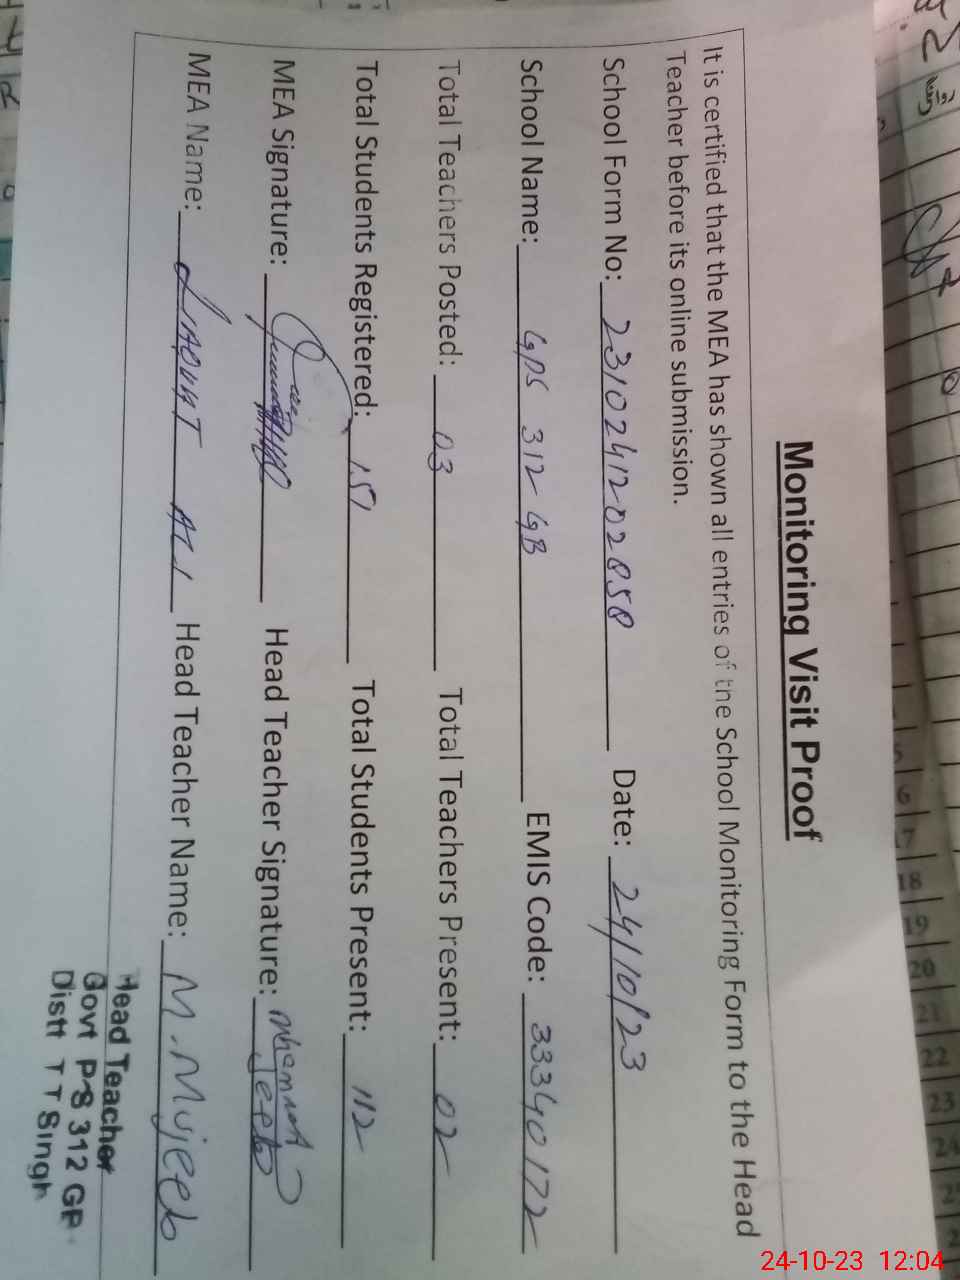 Monitoring Visit Proof
It is certified that the MEA has shown all entries of the School Monitoring Form to the Head
Teacher before its online submission.
School Form No: 2310241202858 Date: 24/10/23
School Name: GPS 312 GB EMIS Code: 33340172
Total Teachers Posted: 03 Total Teachers Present: 02
Total Students Registered: 151 Total Students Present: 112
MEA Signature: Head Teacher Signature:
MEA Name: ALI Head Teacher Name: M. Mujeeb
Head Teacher
Govt P/S 312 GB
Distt T T Singh
5
6
17
18
19
20
21
22
23
24
24-10-23 12:04